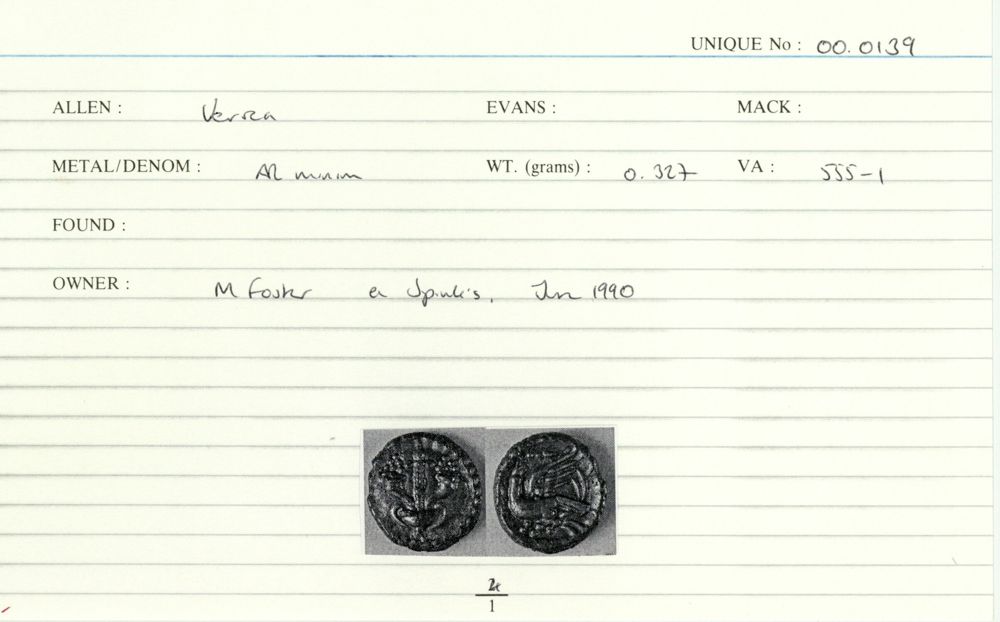 UNIQUE No : 00.0139
ALLEN : Verica EVANS : MACK :
METAL/DENOM : AR minim WT. (grams) : 0.327 VA : 555-1
FOUND :
OWNER : M Foster ex Spink's, Jun 1990
1